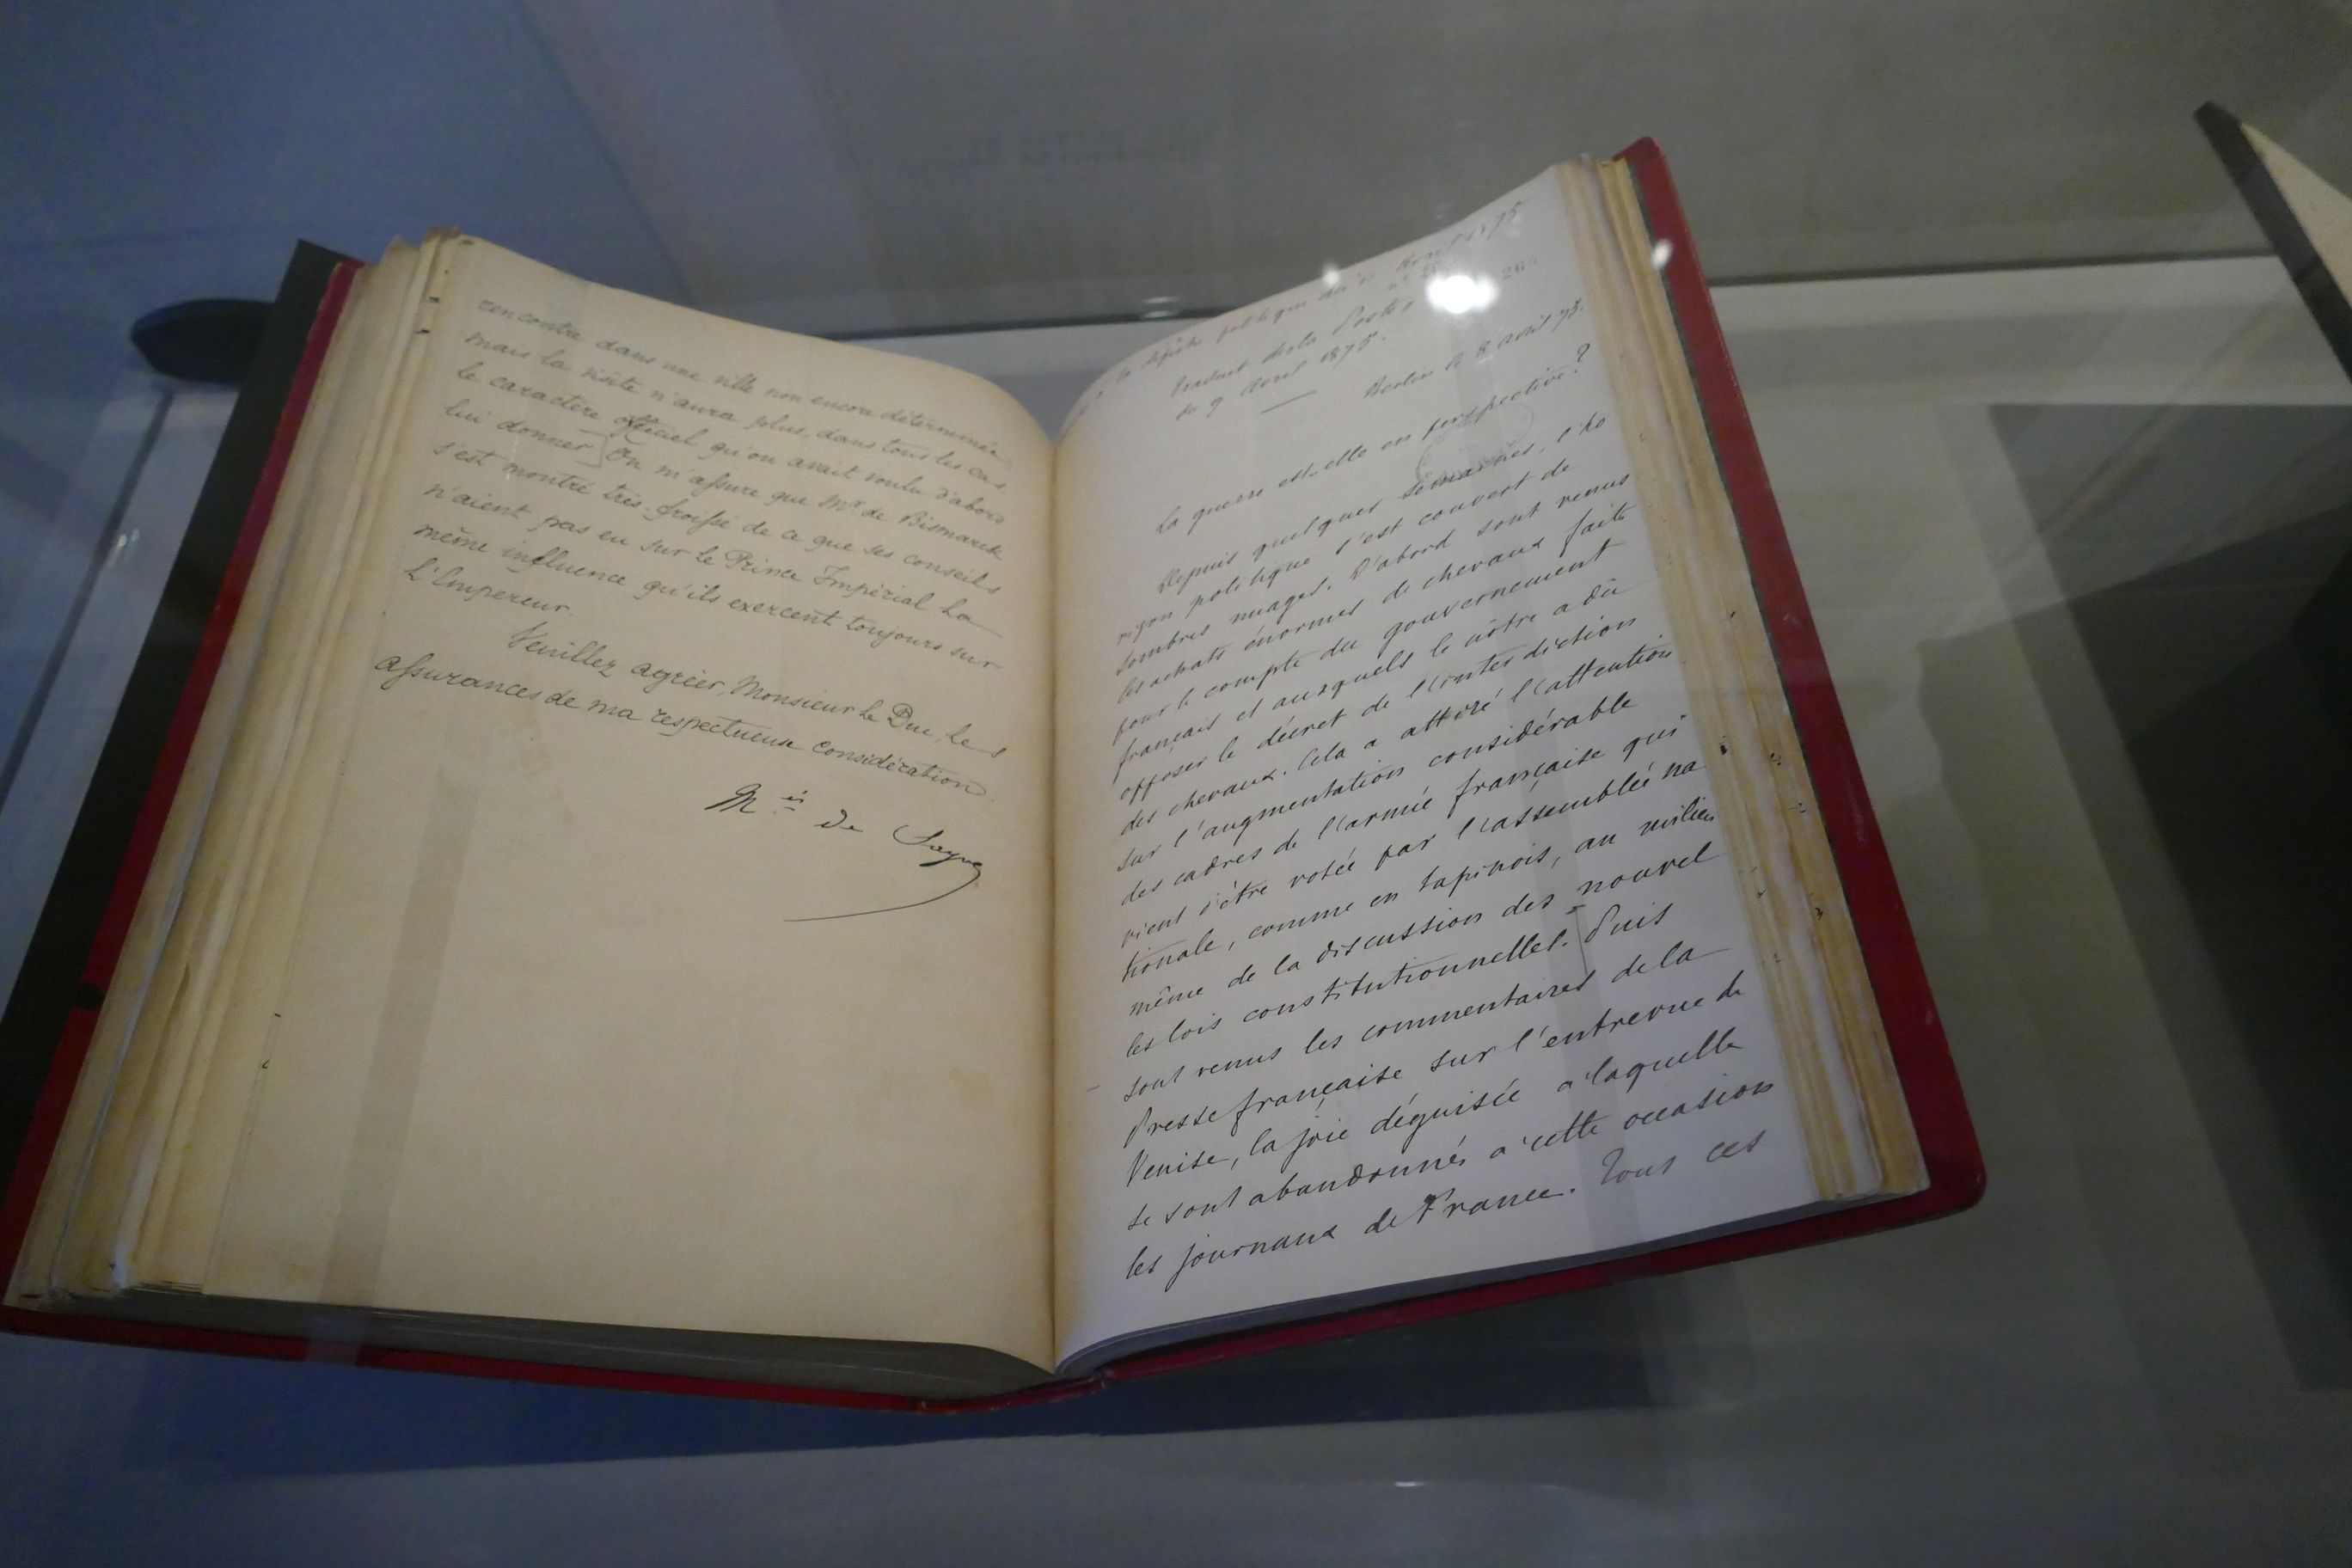 rencontre dans une ville non encore déterminée
mais la visite n'aura plus, dans tous les cas,
le caractère officiel qu'on avait voulu d'abord
lui donner] On m'assure que Mr de Bismarck
s'est montré très-froissé de ce que ses conseils
n'aient pas eu sur le Prince Impérial la
même influence qu'ils exercent toujours sur
L'Empereur.
Veuillez agréer, Monsieur le Duc, les
assurances de ma respectueuse considération
Mis de Sayve
la dépêche politique du Avril 1875
Traduit de la Post
du 9 avril 1875.
Berlin le 8 avril 75.
La guerre est-elle en perspective?
Depuis quelques semaines, l'ho
rizon politique s'est couvert de
sombres nuages. D'abord sont venus
les achats énormes de chevaux faits
pour le compte du gouvernement
français et auxquels le nôtre a dû
opposer le décret de l'interdiction
des chevaux. Cela a attiré l'attention
sur l'augmentation considérable
des cadres de l'armée française qui
vient d'être votée par l'assemblée na
tionale, comme en tapinois, au milieu
même de la discussion des nouvel
les lois constitutionnelles. Puis
sont venus les commentaires de la
Presse française sur l'entrevue de
Venise, la joie déguisée à laquelle
se sont abandonnés à cette occasion
les journaux de France. Tous ces